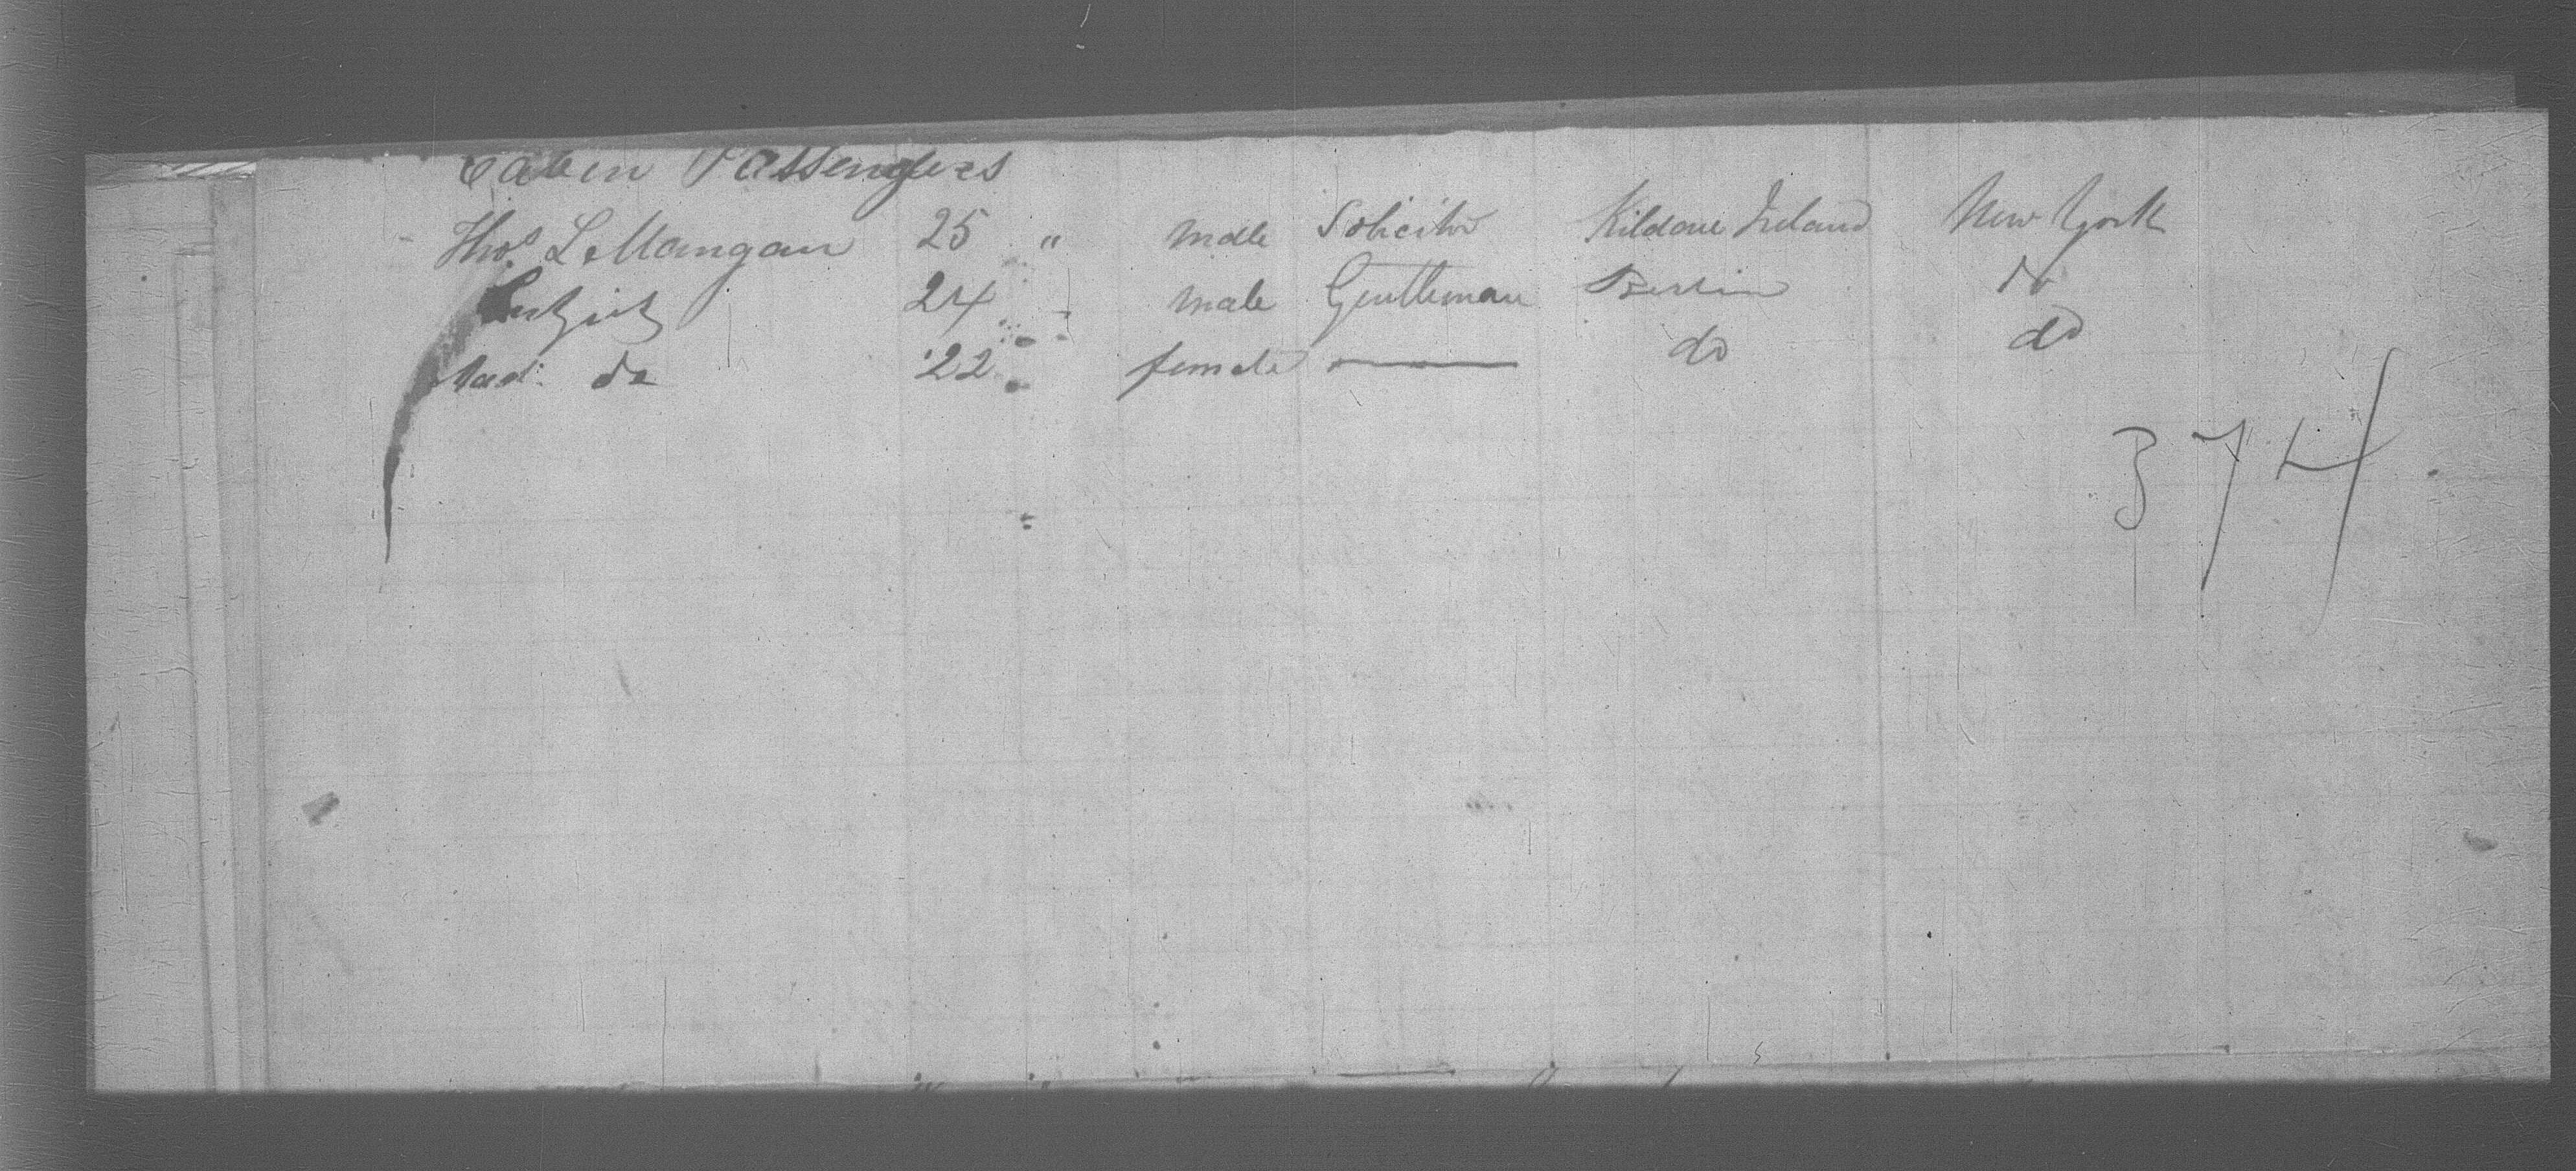 Cabin Passengers
Thos. L. Mangan 25 " male Solicitor Kildare Ireland New York
24 male Gentleman Berlin do
Mad. do 22 female — do do
374